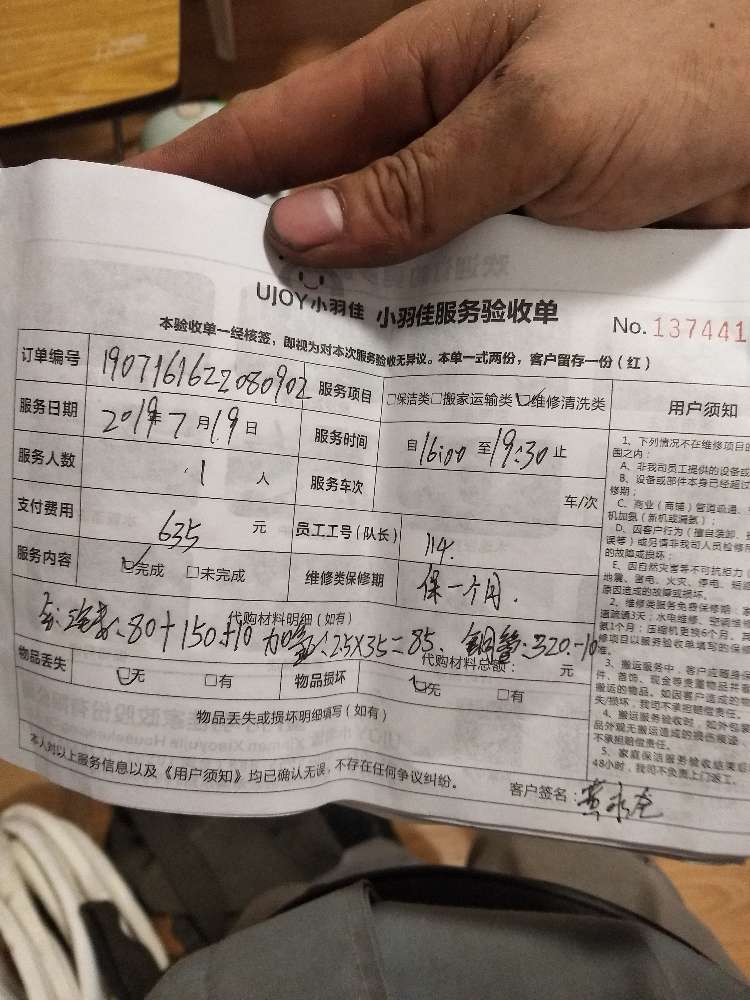 UJOY小羽佳 小羽佳服务验收单
No. 137441
本验收单一经核签，即视为对本次服务验收无异议。本单一式两份，客户留存一份（红）
订单编号 1907161622080902 服务项目 □保洁类□搬家运输类☑维修清洗类
服务日期 2019年7月19日 服务时间 自16:00至19:30止
服务人数 1 人 服务车次 车/次
支付费用 635 元 员工工号（队长） 114.
服务内容 ☑完成 □未完成 维修类保修期 保一个月.
代购材料明细（如有）
80+150+10 加氨:2.5X35=85. 铜管:320.-10
代购材料总额： 元
物品丢失 ☑无 □有 物品损坏 ☑无 □有
物品丢失或损坏明细填写（如有）
本人对以上服务信息以及《用户须知》均已确认无误，不存在任何争议纠纷。
客户签名：黄永龙
用户须知
1、下列情况不在维修项目的
围之内：
A、非我司员工提供的设备或
B、设备或部件本身已经超过
修期；
C、商业（商铺）管道疏通、
机加氨（新机或漏氨）；
D、因客户行为（擅自装卸、
误等）或另请非我司人员检修
的故障或损坏；
E、因自然灾害等不可抗拒力（
地震、雷电、火灾、停电、短
原因造成的故障或损坏。
2、维修类服务免费保修期：
道疏通3天；水电维修、空调维
氨1个月；压缩机更换6个月，
修项目以服务验收单填写的保
准。
3、搬运服务中，客户应随身保
件、首饰、现金等贵重物品并
搬运的物品。如因客户造成的
失/损坏，我司不承担赔偿责任。
4、搬运服务验收时，如外包装
品外观无搬运造成的损伤痕迹，
不承担赔偿责任。
5、家庭保洁服务验收结束后
48小时，我司不负责上门返工。